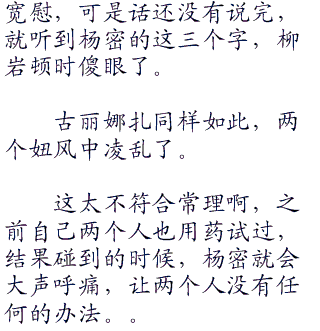 宽慰，可是话还没有说完，
就听到杨密的这三个字，柳
岩顿时傻眼了。
古丽娜扎同样如此，两
个妞风中凌乱了。
这太不符合常理啊，之
前自己两个人也用药试过，
结果碰到的时候，杨密就会
大声呼痛，让两个人没有任
何的办法。。